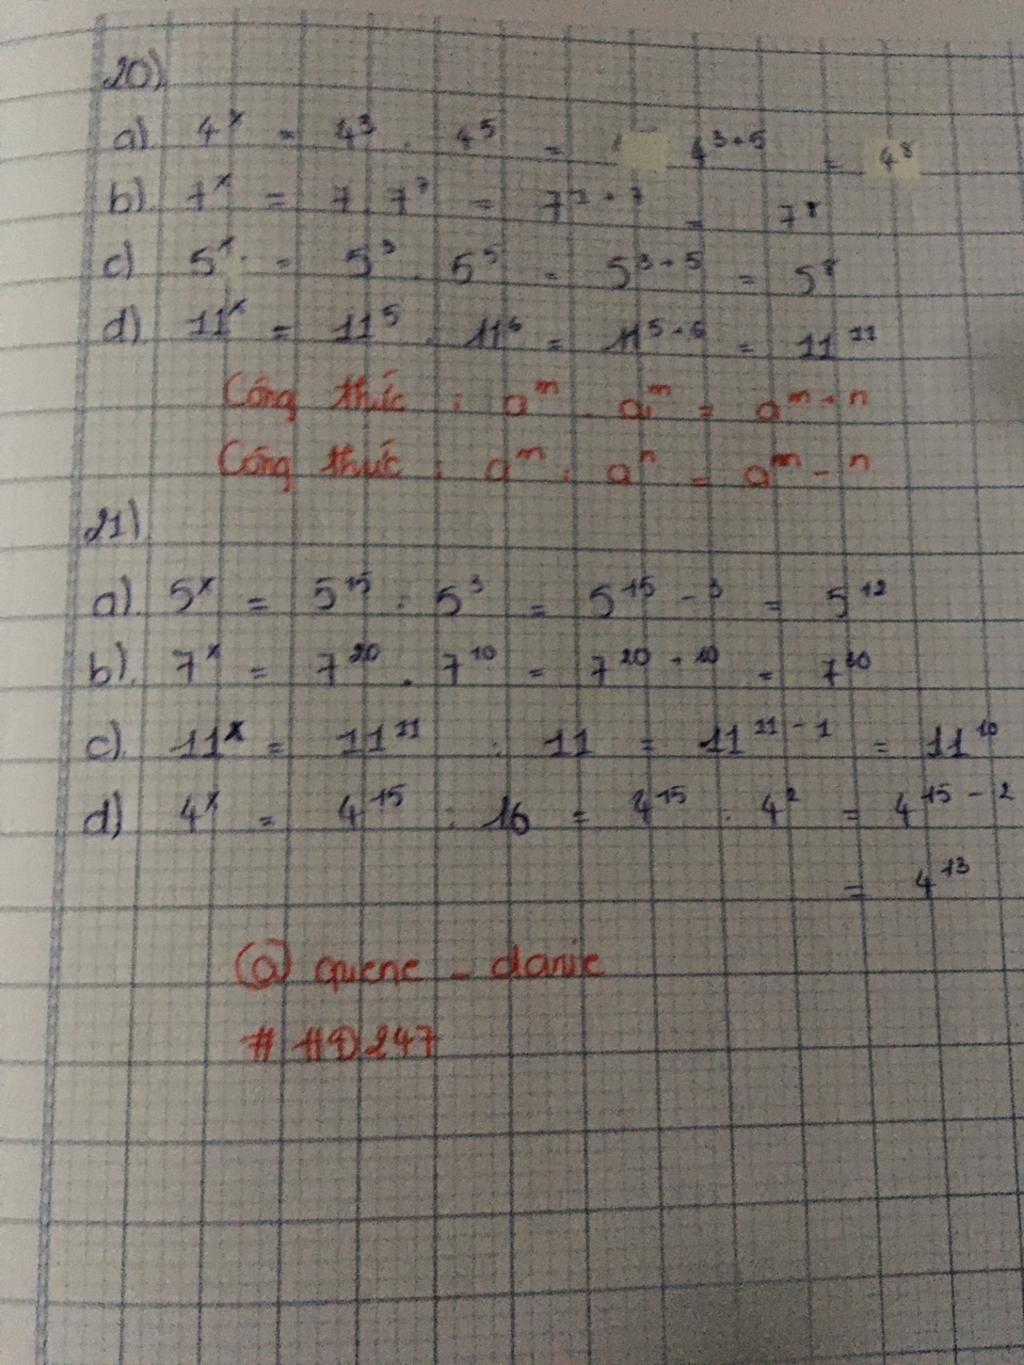 20)
a) 4^x = 4^3 . 4^5 = 4^{3+5} = 4^8
b) 7^x = 7 . 7^7 = 7^{1+7} = 7^8
c) 5^x = 5^3 . 5^5 = 5^{3+5} = 5^8
d) 11^x = 11^5 . 11^6 = 11^{5+6} = 11^{11}
Công thức : a^m . a^m = a^{m+n}
Công thức : a^m : a^n = a^{m-n}
21)
a) 5^x = 5^{15} : 5^3 = 5^{15-3} = 5^{12}
b) 7^x = 7^{20} . 7^{10} = 7^{20+10} = 7^{30}
c) 11^x = 11^{11} : 11 = 11^{11-1} = 11^{10}
d) 4^x = 4^{15} : 16 = 4^{15} : 4^2 = 4^{15-2}
= 4^{13}
@ quene _ danie
# HD247